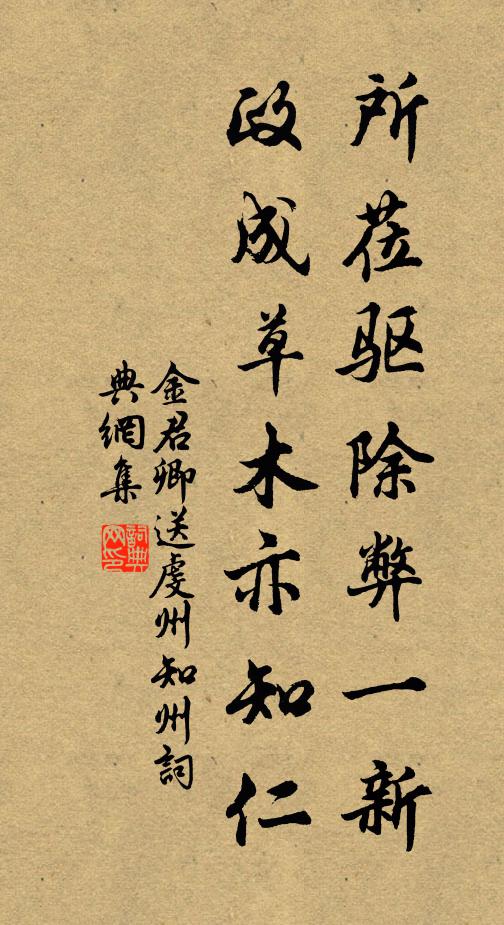 所莅驱除弊一新
政成草木亦知仁
金君卿送虔州知州詞
典網集
詞典網印